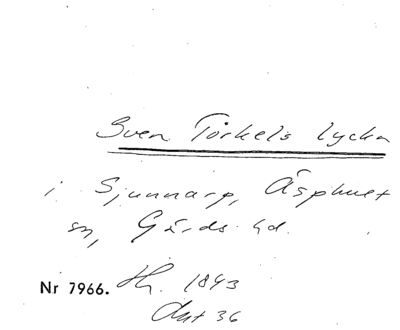 Sven Törkels lycka
i Sjunnarp, Äsphult
sn, Gärds hd.
Nr 7966. Hh. 1843
Akt 36